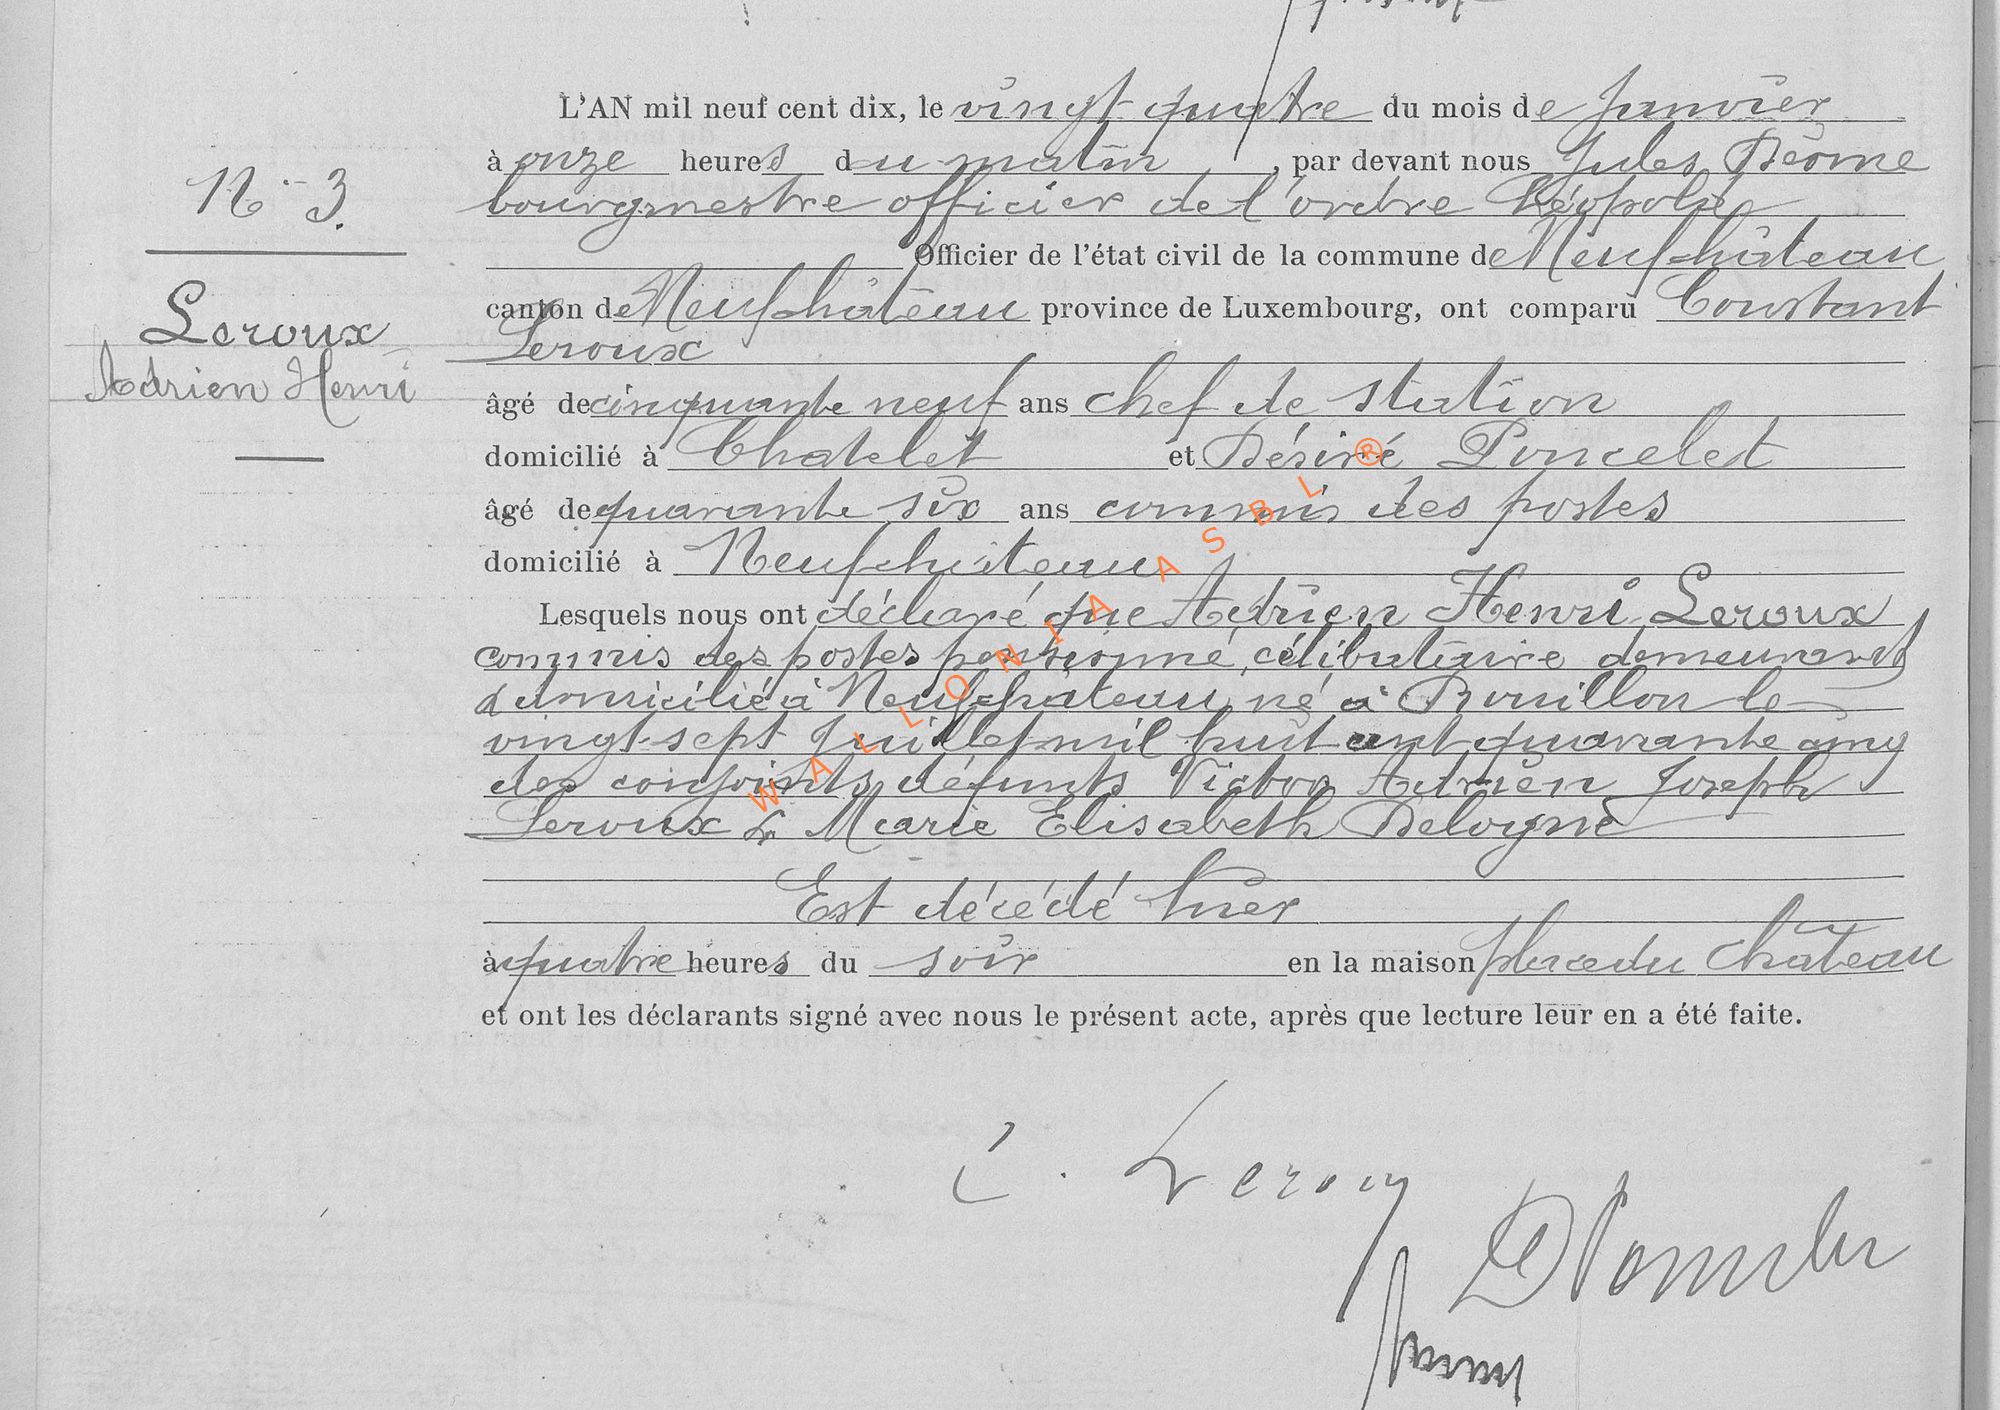 N° 3.
Leroux
Adrien Henri
L'AN mil neuf cent dix, le vingt quatre du mois de janvier
à onze heures du matin, par devant nous Jules Dérome
bourgmestre officier de l'ordre Léopold
Officier de l'état civil de la commune de Neufchâteau
canton de Neufchâteau province de Luxembourg, ont comparu Constant
Leroux
âgé de cinquante neuf ans chef de station
domicilié à Chatelet et Désiré Poncelet
âgé de quarante six ans commis des postes
domicilié à Neufchâteau
Lesquels nous ont déclaré que Adrien Henri Leroux
commis des postes pensionné, célibataire demeurant
domicilié à Neufchâteau, né à Rouillon le
vingt-sept juillet mil huit cent quarante cinq
des conjoints défunts Victor Adrien Joseph
Leroux & Marie Elisabeth Delogne
Est décédé hier
à quatre heures du soir en la maison place du château
et ont les déclarants signé avec nous le présent acte, après que lecture leur en a été faite.
C. Leroux
WALLONIA ASBL ®